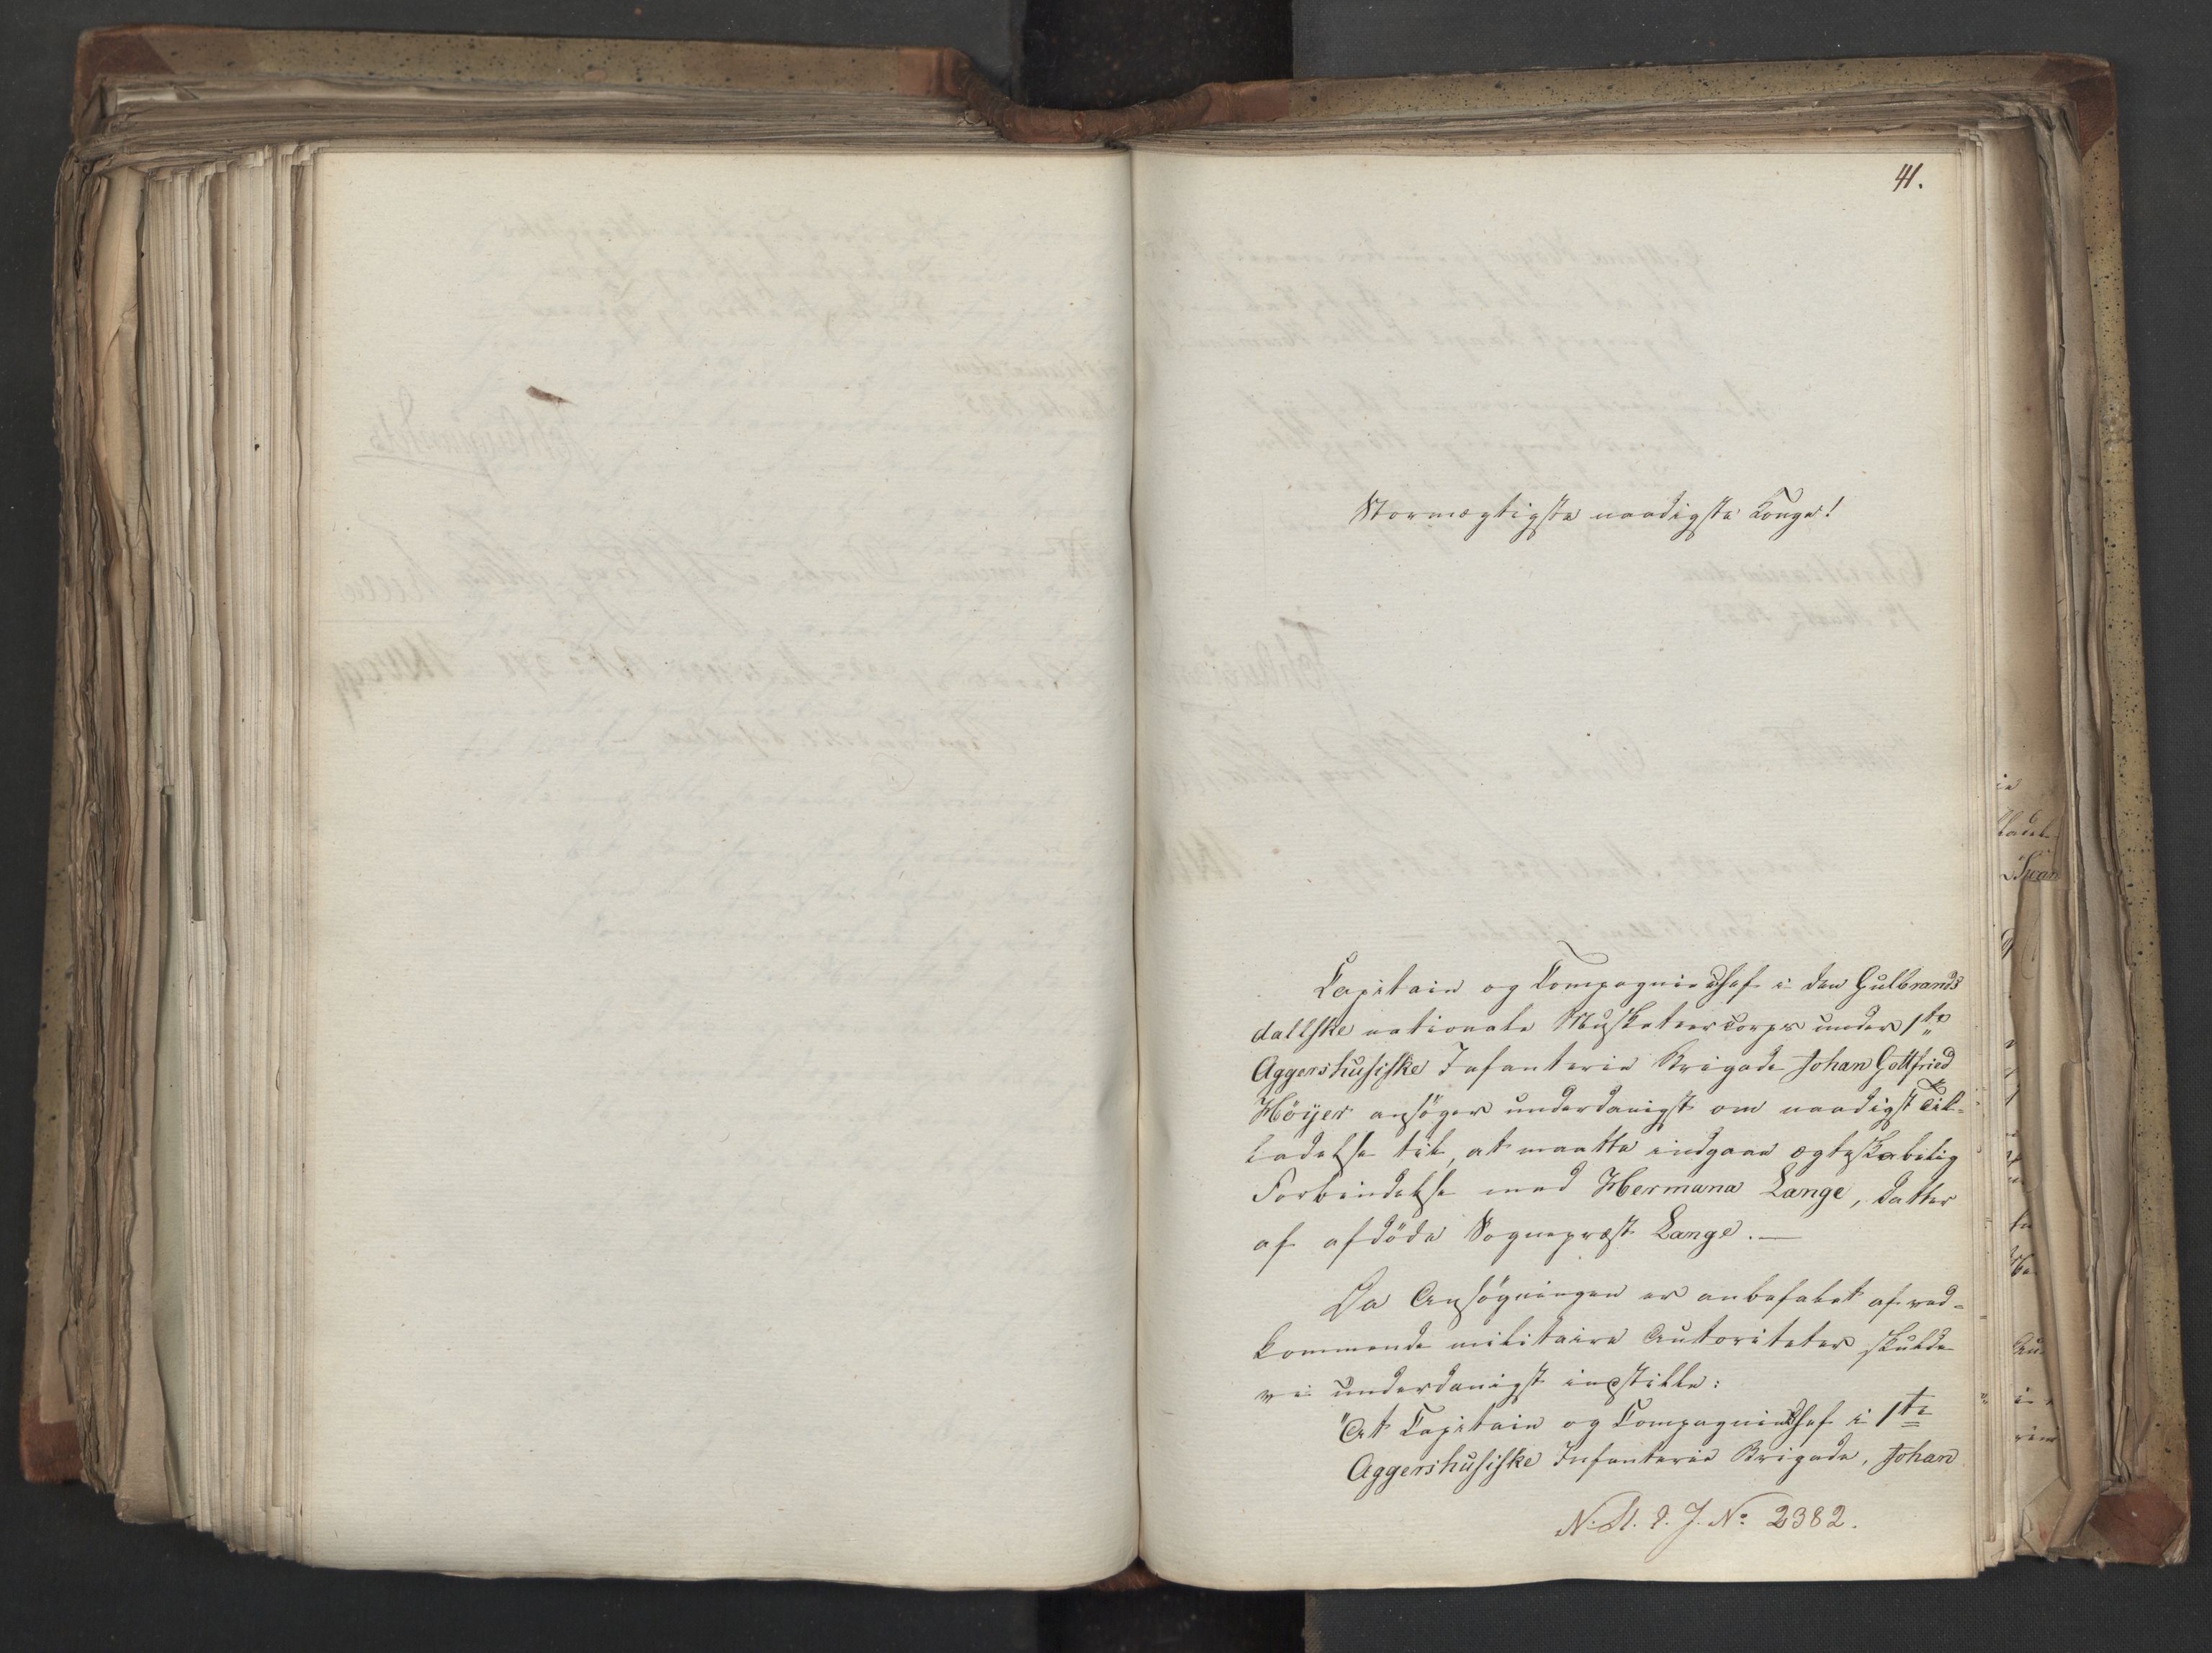 41.
Stormægtigste naadigste Konge!
Capitain og Compagniechef i den Gulbrands
dallske nationale Musketeercorps under 1ste
Aggershusiske Infanterie Brigade Johan Gottfried
Höyer ansöger underdanigst om naadigst Til-
ladelse til, at maatte indgaae ægteskabelig
Forbindelse med Hermana Lange, Datter
af afdöde Sognepræst Lange. —
Da Ansögningen er anbefalet af ved-
kommende militaire Autoriteter skulde
vi underdanigst indstille:
"At Capitain og Compagniechef i 1ste
Aggershusiske Infanterie Brigade, Johan
J. No 2382.